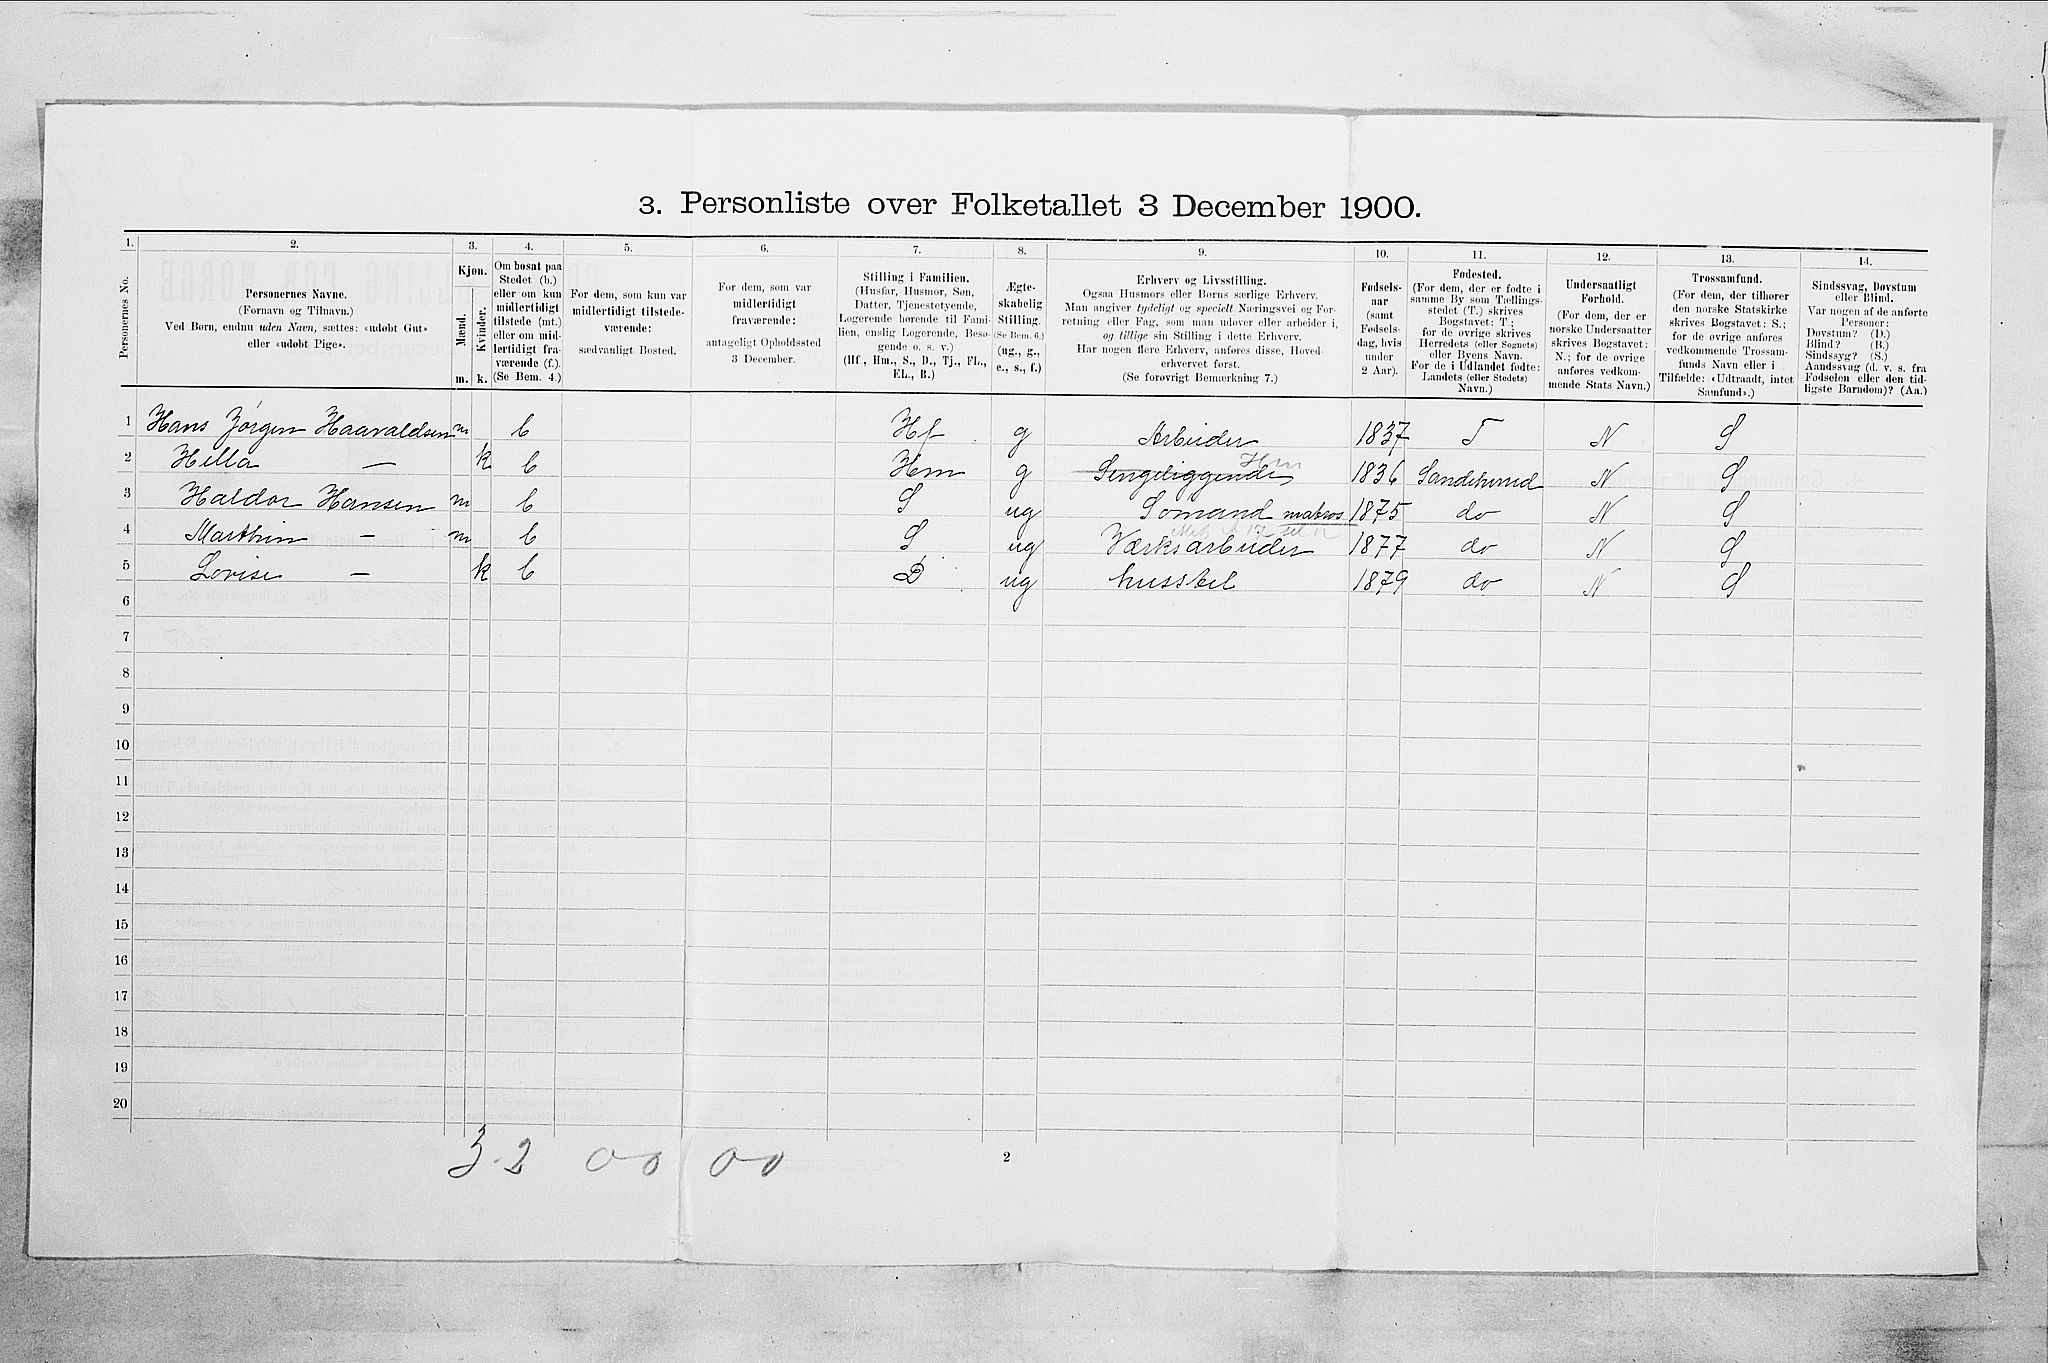 3. Personliste over Folketallet 3 December 1900.
1. 2. 3. 4. 5. 6. 7. 8. 9. 10. 11. 12. 13. 14.
Personernes No.
Personernes Navne.
(Fornavn og Tilnavn.)
Ved Børn, endnu uden Navn, sættes: «udøbt Gut»
eller «udøbt Pige».
Kjøn.
Mænd.
Kvinder.
m. k.
Om bosat paa
Stedet (b.)
eller om kun
midlertidigt
tilstede (mt.)
eller om mid-
lertidigt fra-
værende (f.).
(Se Bem. 4.)
For dem, som kun var
midlertidigt tilstede-
værende:
sædvanligt Bosted.
For dem, som var
midlertidigt
fraværende:
antageligt Opholdssted
3 December.
Stilling i Familien.
(Husfar, Husmor, Søn,
Datter, Tjenestetyende,
Logerende hørende til Fami-
lien, enslig Logerende, Besø-
gende o. s. v.)
(Hf., Hm., S., D., Tj., FL.,
EL., B.)
Ægte-
skabelig
Stilling.
(Se Bem. 6.)
(ug., g.,
e., s., f.)
Erhverv og Livsstilling.
Ogsaa Husmors eller Børns særlige Erhverv.
Man angiver tydeligt og specielt Næringsvei og For-
retning eller Fag, som man udøver eller arbeider i,
og tillige sin Stilling i dette Erhverv.
Har nogen flere Erhverv, anføres disse, Hoved-
erhvervet først.
(Se forøvrigt Bemærkning 7.)
Fødsels-
aar
(samt
Fødsels-
dag, hvis
under
2 Aar).
Fødested.
(For dem, der er fødte i
samme By som Tællings-
stedet (T.) skrives
Bogstavet: T.;
for de øvrige skrives
Herredets (eller Sognets)
eller Byens Navn.
For de i Udlandet fødte:
Landets (eller Stedets)
Navn.)
Undersaatligt
Forhold.
(For dem, der er
norske Undersaatter
skrives Bogstavet:
N.; for de øvrige
anføres vedkom-
mende Stats Navn.)
Trossamfund.
(For dem, der tilhører
den norske Statskirke
skrives Bogstavet: S.;
for de øvrige anføres
vedkommende Trossam-
funds Navn eller i
Tilfælde: «Udtraadt, intet
Samfund».)
Sindssvag, Døvstum
eller Blind.
Var nogen af de anførte
Personer:
Døvstum? (D.)
Blind? (B.)
Sindssyg? (S.)
Aandssvag (d. v. s. fra
Fødselen eller den tid-
ligste Barndom)? (Aa.)
1 Hans Jørgen Haavaldsen m b Hf g Arbeider 1837 T N S
2 Hella — k b Hm g Sengeliggende Hm 1836 Sandeherred N S
3 Haldor Hansen m b S ug Sömand matros 1875 do N S
4 Marthin — m b S ug Værksarbeider 1877 do N S
5 Lovise — k b D ug husstel 1879 do N S
6
7
8
9
10
11
12
13
14
15
16
17
18
19
20
3 2 00 00
2